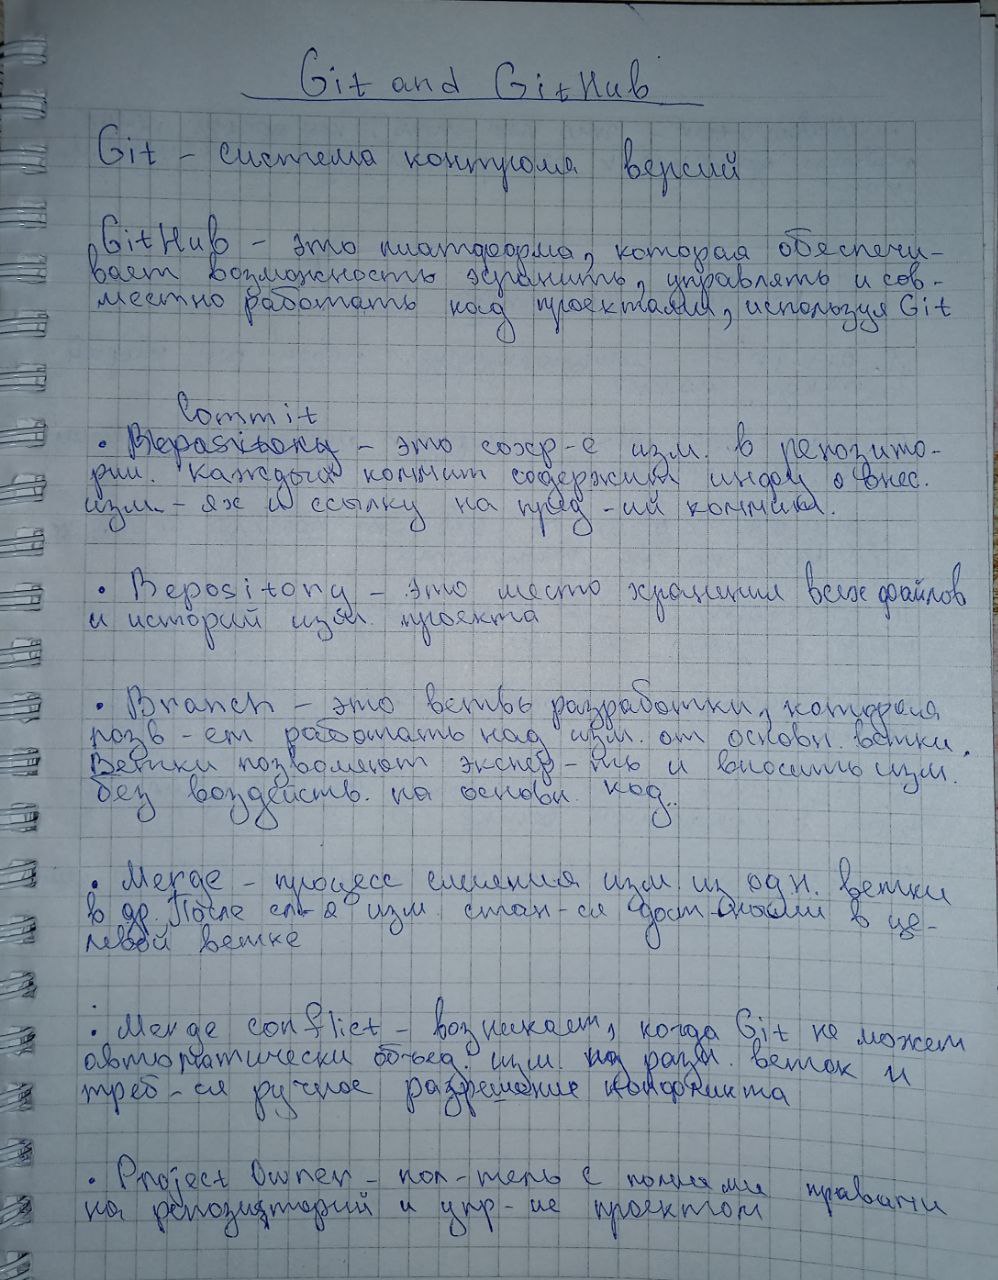 Git and GitHub
Git - система контроля версий
GitHub - это платформа, которая обеспечи-
вает возможность хранить, управлять и сов-
местно работать над проектами, используя Git
Commit
• Repository - это сохр-е изм. в репозито-
рии. Каждый коммит содержит инфу о внес.
изм. - ях и ссылку на пред -ий коммит.
• Repository - это место хранения всех файлов
и историй изм. проекта
• Branch - это ветвь разработки, которая
позв - ет работать над изм. от основн. ветки.
Ветки позволяют экспер - ть и вносить изм.
без воздейств. на основн. код.
• Merge - процесс слияния изм. из одн. ветки
в др. После сл-я изм. стан-ся дост-ными в це-
левой ветке
• Merge conflict - возникает, когда Git не может
автоматически объед. изм. из разн. веток и
треб - ся ручное разрешение конфликта
• Project Owner - пол-тель с полными правами
на репозиторий и упр- ие проектом